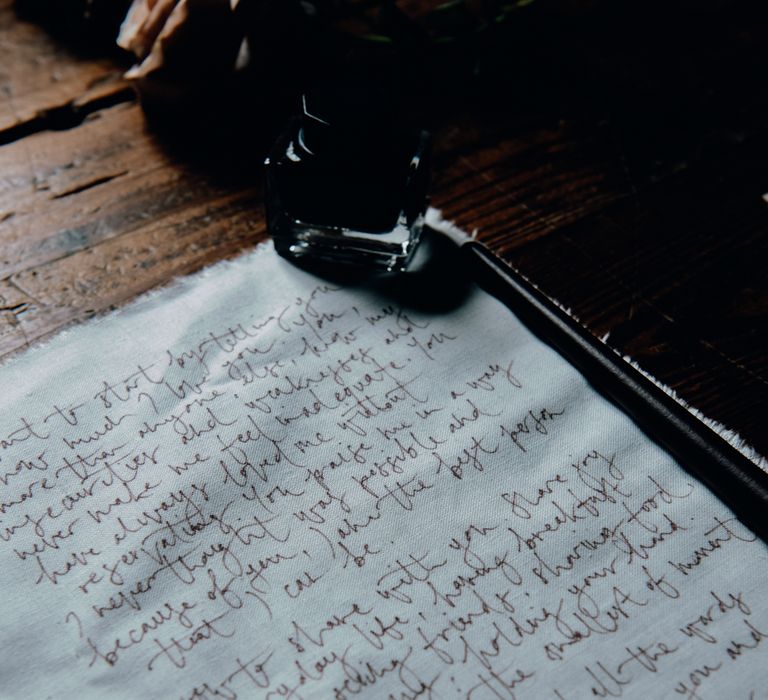 want to start by telling you
how much I love you. You,
more than anyone else, know my
insecurities and weaknesses and
never make me feel inadequate. You
have always loved me without
reservation. You praise me in a way
I never thought was possible and
because of you, I am the best person
that I can be.
to share with you. Share joy
day life; having breakfast
friends; sharing food
holding your hand.
the smallest of
all the words
you and